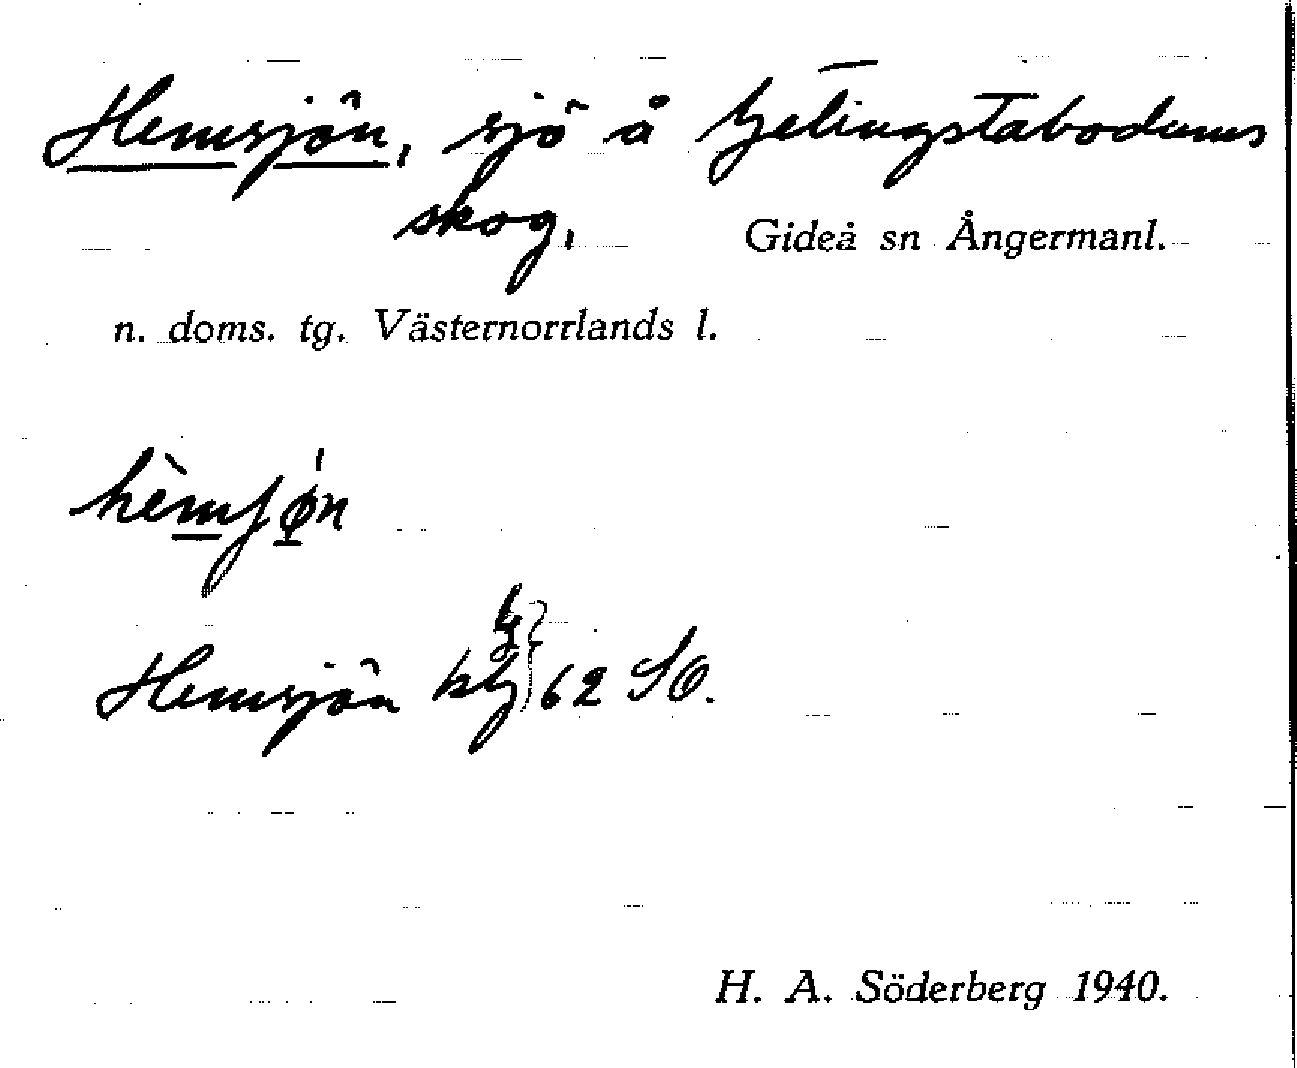 Hemsjön, sjö å Gelingstabodums
skog,
Gideå sn Ångermanl.
n. doms. tg. Västernorrlands l.
hèmʃø̀n
Hemsjön 62 SO.
H. A. Söderberg 1940.